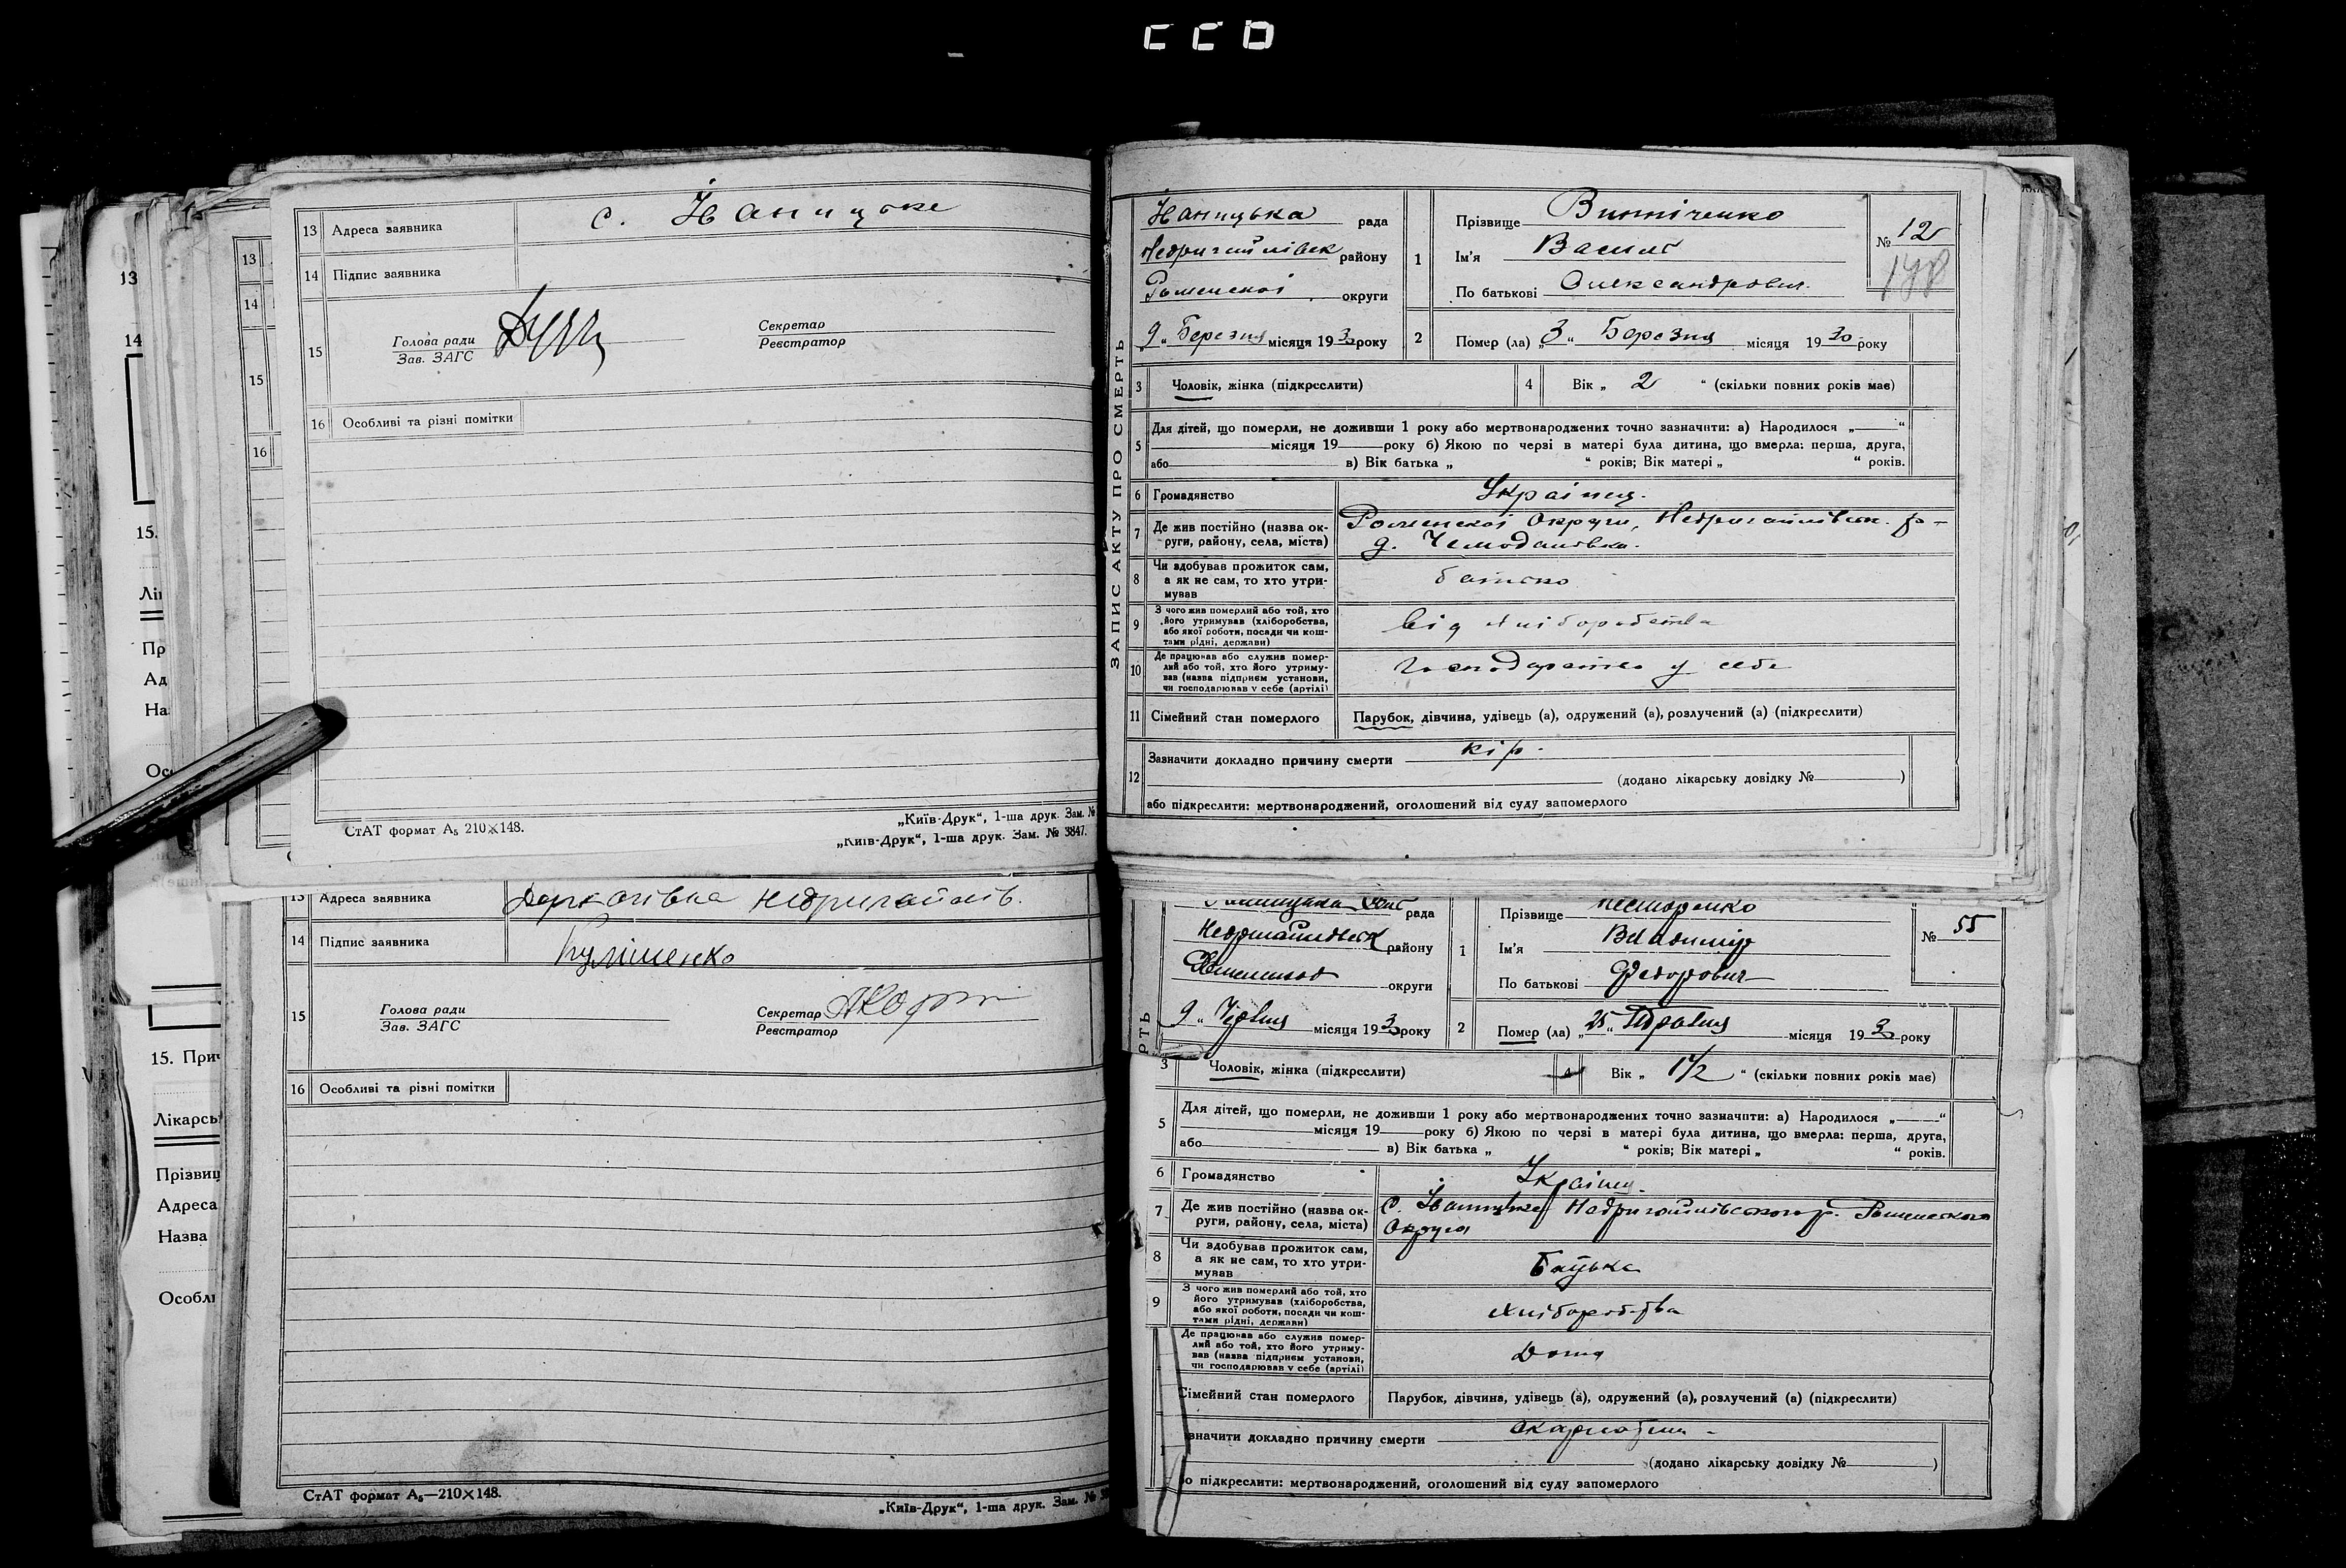 13 Адреса заявника с. Іваницьке
14 Підпис заявника
15 Голова ради
Зав. ЗАГС
Секретар
Реєстратор
16 Особливі та різні помітки
СтАТ формат А₅ 210×148.
„Київ-Друк“, 1-ша друк. Зам. №
„Київ-Друк“, 1-ша друк. Зам. № 3847.
13 Адреса заявника Деркачівка Недригайлів.
14 Підпис заявника Кулішенко
15 Голова ради
Зав. ЗАГС
Секретар
Реєстратор
16 Особливі та різні помітки
СтАТ формат А₅—210×148.
„Київ-Друк“, 1-ша друк. Зам. №
13
14
15
16
13
14
15.
Лі
Пр
Ад
На
Ос
15. Прич
Лікарсь
Прізвищ
Адреса
Назва
Особл
ЗАПИС АКТУ ПРО СМЕРТЬ
Іваницька рада
Недригайлівськ району
Роменської округи
„9“ Березня місяця 1930 року
1 Прізвище
Ім'я Василь
По батькові Олександрович
№ 12
2 Помер (ла) „3“ Березня місяця 1930 року
3 Чоловік, жінка (підкреслити)
4 Вік „ 2 “ (скільки повних років має)
5 Для дітей, що померли, не доживши 1 року або мертвонароджених точно зазначити: а) Народилося „ “
місяця 19 року б) Якою по черзі в матері була дитина, що вмерла: перша, друга,
або в) Вік батька „ “ років; Вік матері „ “ років.
6 Громадянство Українец.
7 Де жив постійно (назва округи, району, села, міста) Роменської Округи, Недригайлівськ. р-
д. Чемоданівка.
8 Чи здобував прожиток сам,
а як не сам, то хто утри-
мував батько
9 З чого жив померлий або той, хто
його утримував (хліборобства,
або якої роботи, посади чи кош-
тами рідні, держави) від хліборобства
10 Де працював або служив помер-
лий або той, хто його утриму-
вав (назва підприєм установи,
чи господарював у себе (артілі) Господарство у себе
11 Сімейний стан померлого Парубок, дівчина, удівець (а), одружений (а), розлучений (а) (підкреслити)
12 Зазначити докладно причину смерти кір.
(додано лікарську довідку № )
або підкреслити: мертвонароджений, оголошений від суду запомерлого
РТЬ
рада
Недригайлівськ району
округи
9 „ Червня місяця 1930 року
1 Прізвище Несторенко
Ім'я Владимир
По батькові Федорович
№ 55
2 Помер (ла) „25“ Травня місяця 1930 року
3 Чоловік, жінка (підкреслити)
4 Вік „ 1 1/2 “ (скільки повних років має)
5 Для дітей, що померли, не доживши 1 року або мертвонароджених точно зазначити: а) Народилося „ “
місяця 19 року б) Якою по черзі в матері була дитина, що вмерла: перша, друга,
або в) Вік батька „ “ років; Вік матері „ “ років.
6 Громадянство Українец.
7 Де жив постійно (назва округи, району, села, міста) С. Іваницьке Недригайлівського р. Роменського
Округи
8 Чи здобував прожиток сам,
а як не сам, то хто утри-
мував Батька
9 З чого жив померлий або той, хто
його утримував (хліборобства,
або якої роботи, посади чи кош-
тами рідні, держави) хліборобства
Де працював або служив помер-
лий або той, хто його утриму-
вав (назва підприєм установи,
чи господарював у себе (артілі) Дома
Сімейний стан померлого Парубок, дівчина, удівець (а), одружений (а), розлучений (а) (підкреслити)
значити докладно причину смерти скарлатина
(додано лікарську довідку № )
бо підкреслити: мертвонароджений, оголошений від суду запомерлого